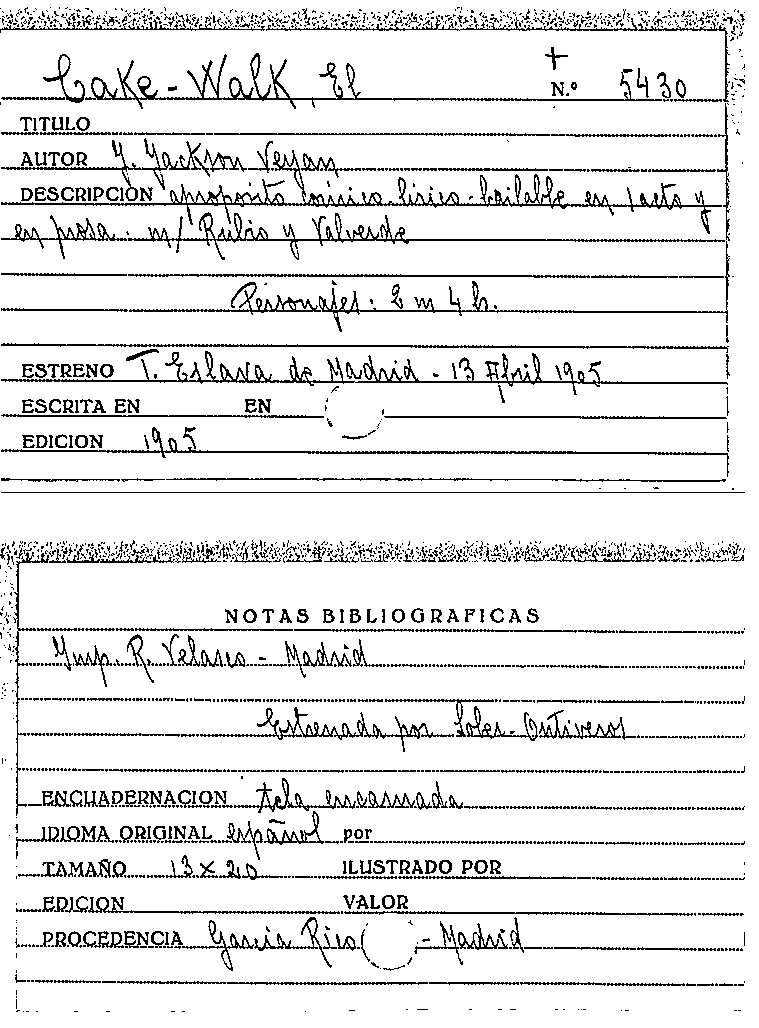 Cake-Walk, El
+
N.º 5430
TITULO
AUTOR J. Jackson Veyan
DESCRIPCION aproposito cómico-lírico-bailable en 1 acto y
en prosa. m/ Rubio y Valverde
Personajes: 2 m 4 h.
ESTRENO T. Eslava de Madrid - 13 Abril 1905
ESCRITA EN EN
EDICION 1905
NOTAS BIBLIOGRAFICAS
Imp. R. Velasco - Madrid
Estrenada por Soler-Ontiveros
ENCUADERNACION tela encarnada
IDIOMA ORIGINAL español por
TAMAÑO 13 x 20 ILUSTRADO POR
EDICION VALOR
PROCEDENCIA Garcia Rico - Madrid